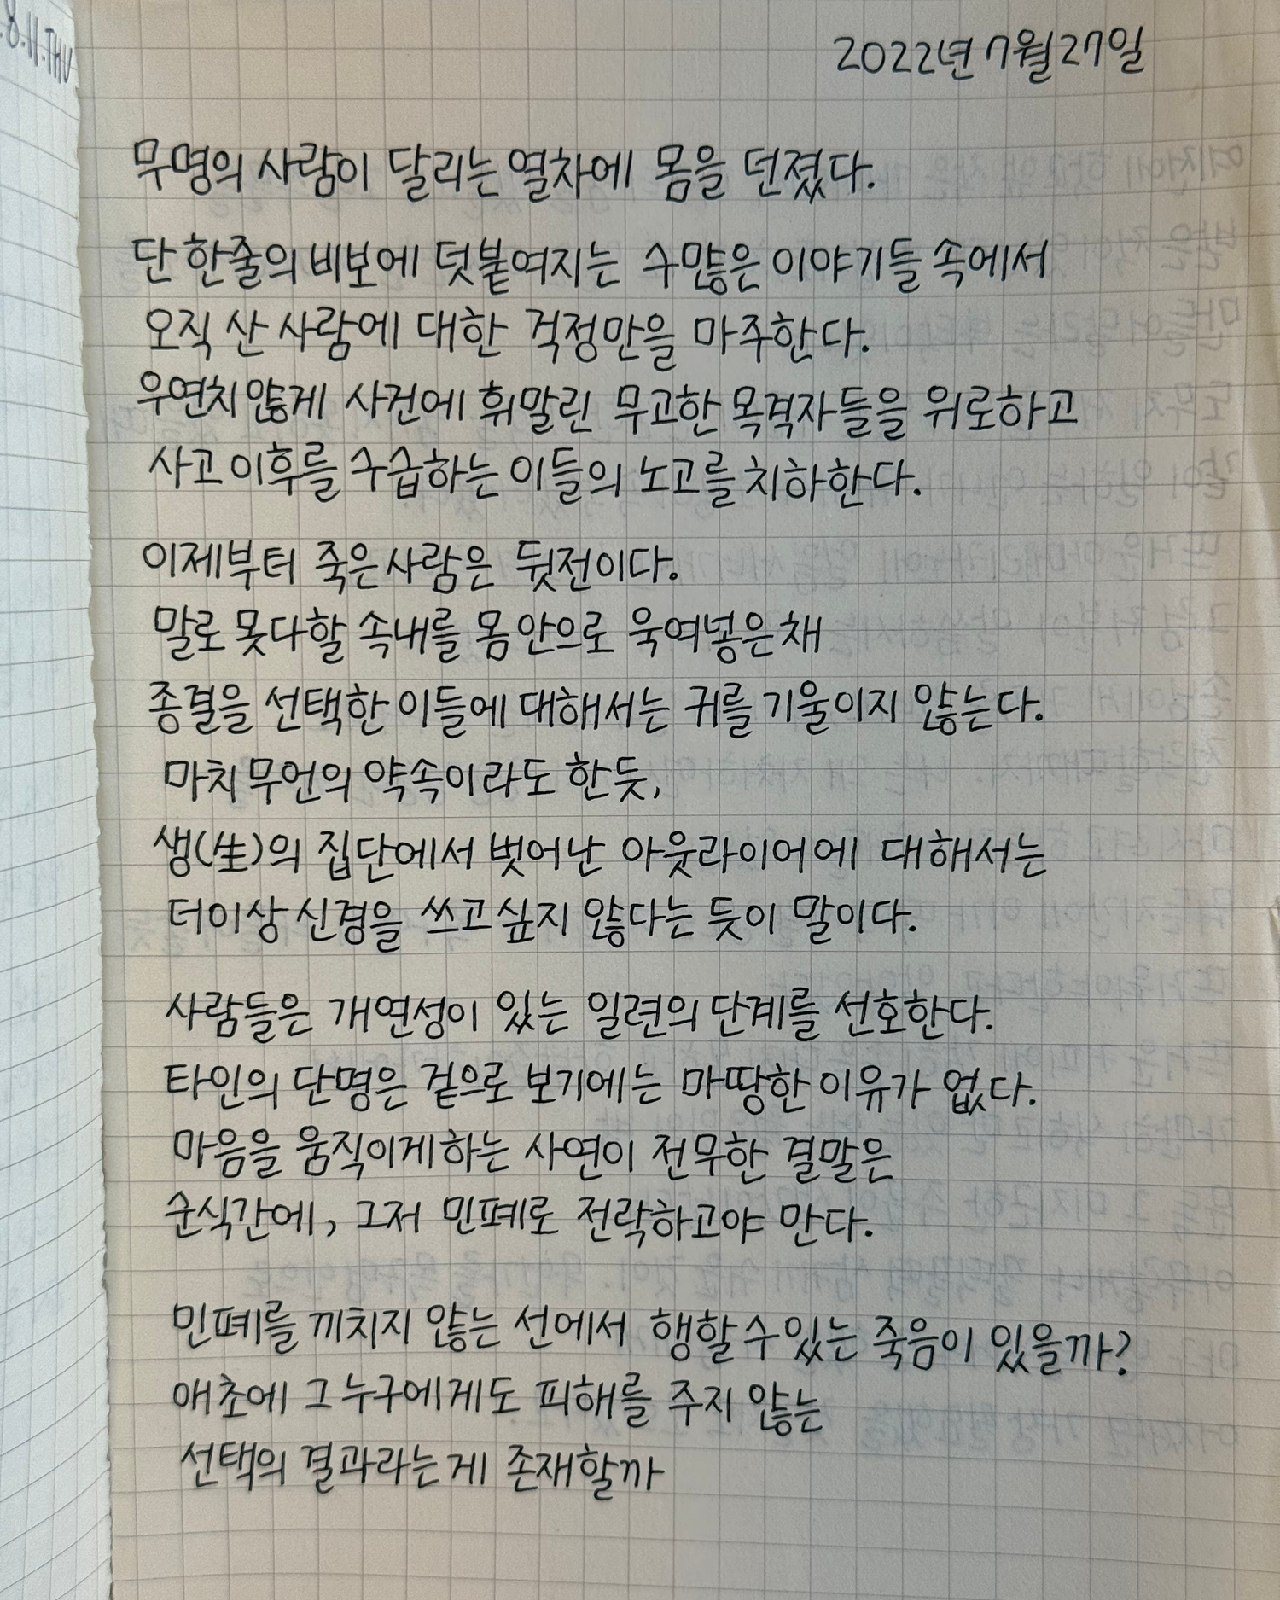 2022년 7월 27일
무명의 사람이 달리는 열차에 몸을 던졌다.
단 한줄의 비보에 덧붙여지는 수많은 이야기들 속에서
오직 산 사람에 대한 걱정만을 마주한다.
우연치 않게 사건에 휘말린 무고한 목격자들을 위로하고
사고 이후를 수습하는 이들의 노고를 치하한다.
이제부터 죽은 사람은 뒷전이다.
말로 못다할 속내를 몸 안으로 욱여넣은 채
종결을 선택한 이들에 대해서는 귀를 기울이지 않는다.
마치 무언의 약속이라도 한듯,
생(生)의 집단에서 벗어난 아웃라이어에 대해서는
더이상 신경을 쓰고싶지 않다는 듯이 말이다.
사람들은 개연성이 있는 일련의 단계를 선호한다.
타인의 단명은 겉으로 보기에는 마땅한 이유가 없다.
마음을 움직이게하는 사연이 전무한 결말은
순식간에, 그저 민폐로 전락하고야 만다.
민폐를 끼치지 않는 선에서 행할 수 있는 죽음이 있을까?
애초에 그 누구에게도 피해를 주지 않는
선택의 결과라는게 존재할까